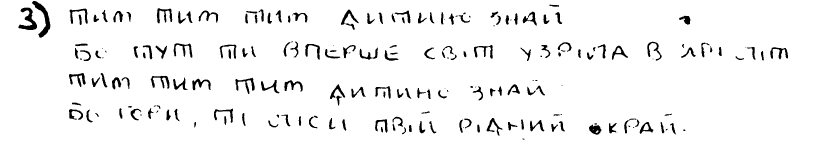 3) тим тим тим дитино знай
Бо тут ти вперше світ узріла в ярі літ
тим тим тим дитино знай
Бо гори, ті ліси твій рідний край.